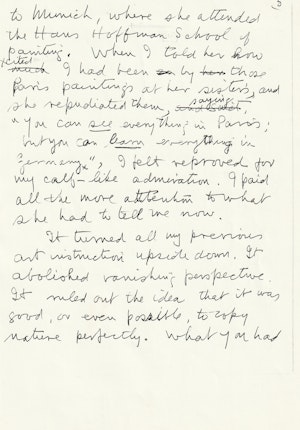 3
to Munich, where she attended
the Hans Hoffman School of
painting. When I told her how
excited
much I had been by her those
Paris paintings at her sisters, and
she repudiated them, saying
"You can see everything in Paris;
but you can learn everything in
Germany", I felt reproved for
my calf-like admiration. I paid
all the more attention to what
she had to tell me now.
It turned all my previous
art instruction upside down. It
abolished vanishing perspective.
It ruled out the idea that it was
good, or even possible, to copy
nature perfectly. What you had